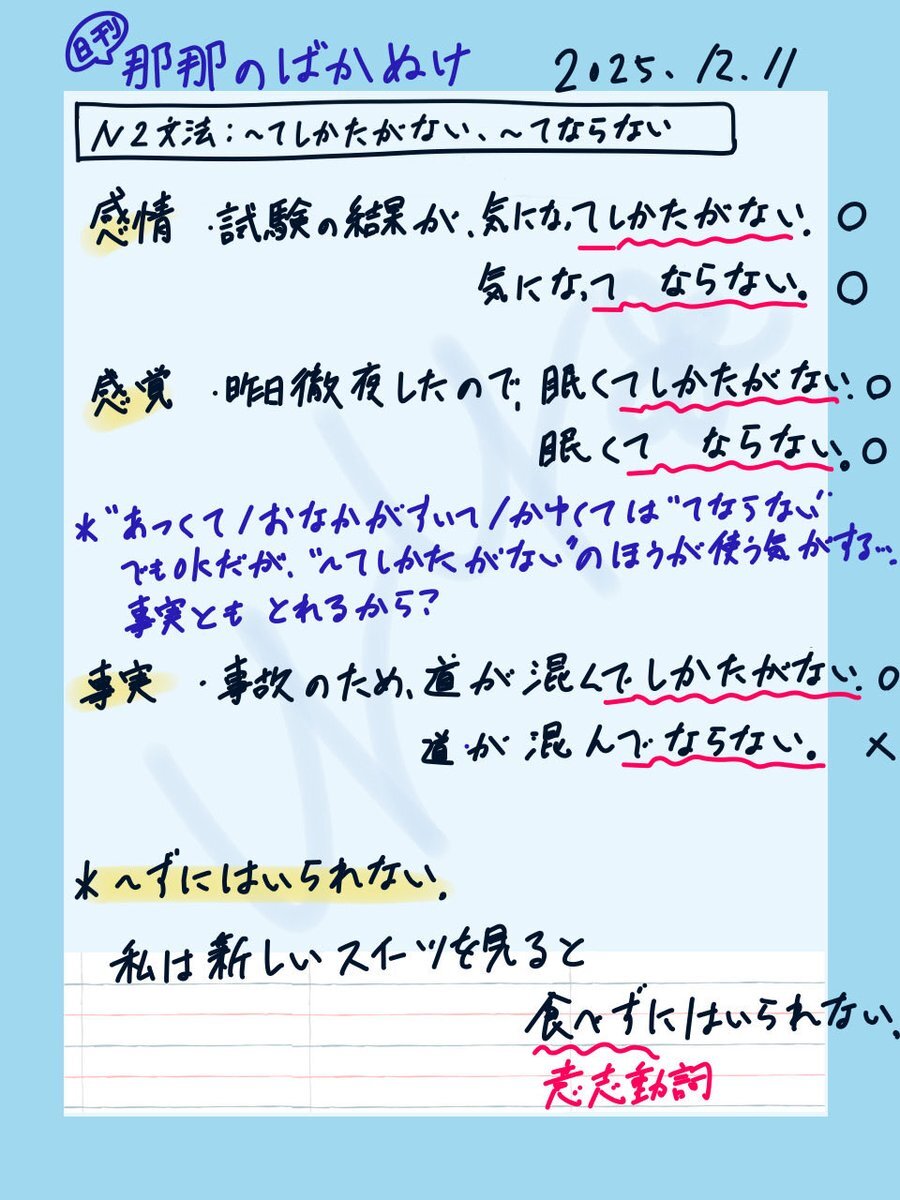 日刊 那那のばかぬけ 2025.12.11
N2文法:~てしかたがない、~てならない
感情 ・試験の結果が、気になってしかたがない。○
気になって ならない。○
感覚 ・昨日徹夜したので、眠くてしかたがない。○
眠くて ならない。○
*"あつくて/おなかがすいて/かゆくては"てならない"
でもokだが、"~てしかたがない"のほうが使う気がする…
事実とも とれるから?
事実 ・事故のため、道が混んでしかたがない。○
道が混んでならない。×
*~ずにはいられない。
私は新しいスイーツを見ると
食べずにはいられない。
意志動詞